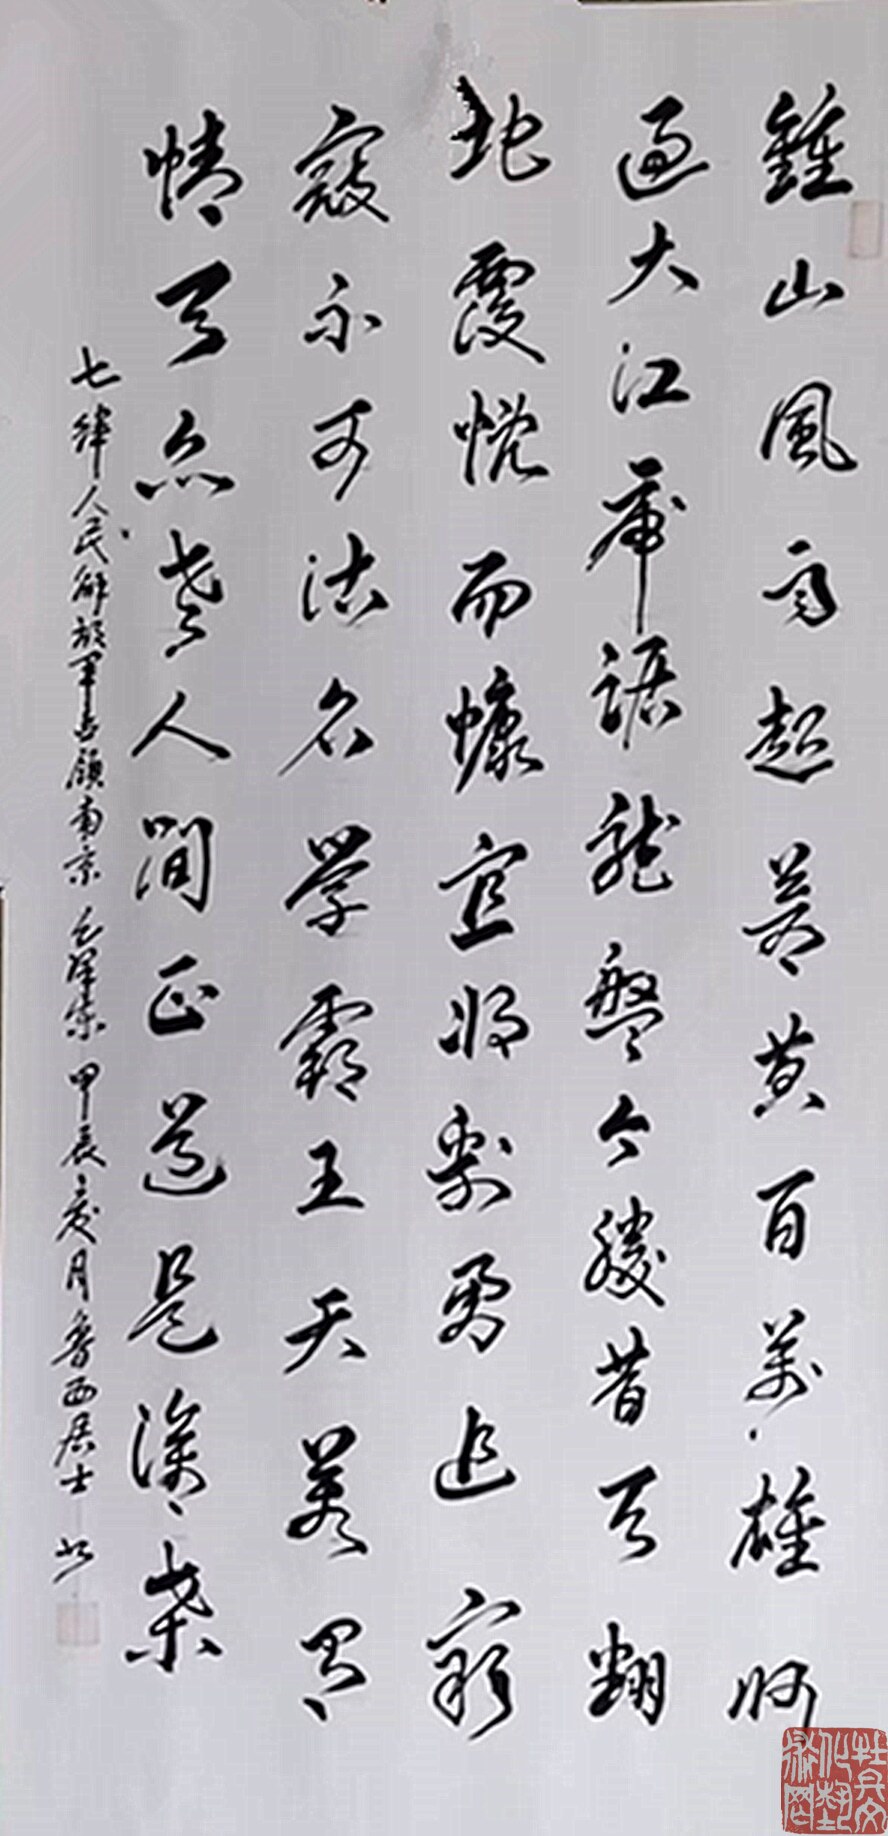 鍾山風雨起蒼黃百萬雄師
過大江虎踞龍盤今勝昔天翻
地覆慨而慷宜將剩勇追窮
寇不可沽名學霸王天若有
情天亦老人間正道是滄桑
七律人民解放軍占領南京 毛澤東 甲辰夏月魯西居士